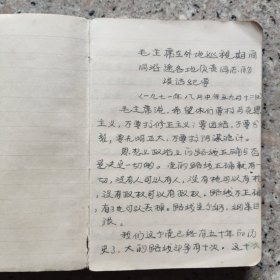 毛主席在外地巡视期间
同沿途各地负责同志的
谈话纪要
(一九七一年八月中旬至九月十二日)
毛主席说,希望你们要搞马克思
主义,不要搞修正主义;要团结,不要分
裂;要光明正大,不要搞阴谋诡计。
思想上政治上的路线正确与否
是决定一切的。党的路线正确就有一
切,没有人可以有人,没有枪可以有枪
,没有政权可以有政权。路线不正确
,有了也可以丢掉。路线是个纲,纲举目
张。
我们这个党已经有五十年的历
史了,大的路线斗争有十次。这十次